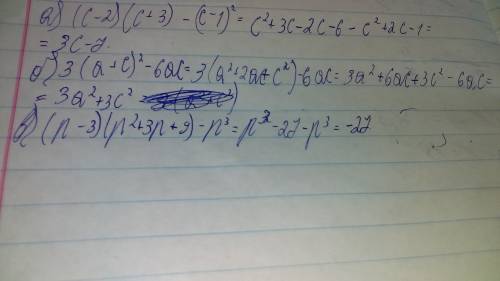 а) (c-2)(c+3) - (c-1)² = c²+3c-2c-6-c²+2c-1=
= 3c-7.
б) 3(a+c)²-6ac=3(a²+2ac+c²)-6ac=3a²+6ac+3c²-6ac=
= 3a²+3c²
в) (p-3)(p²+3p+9)-p³=p³-27-p³=-27